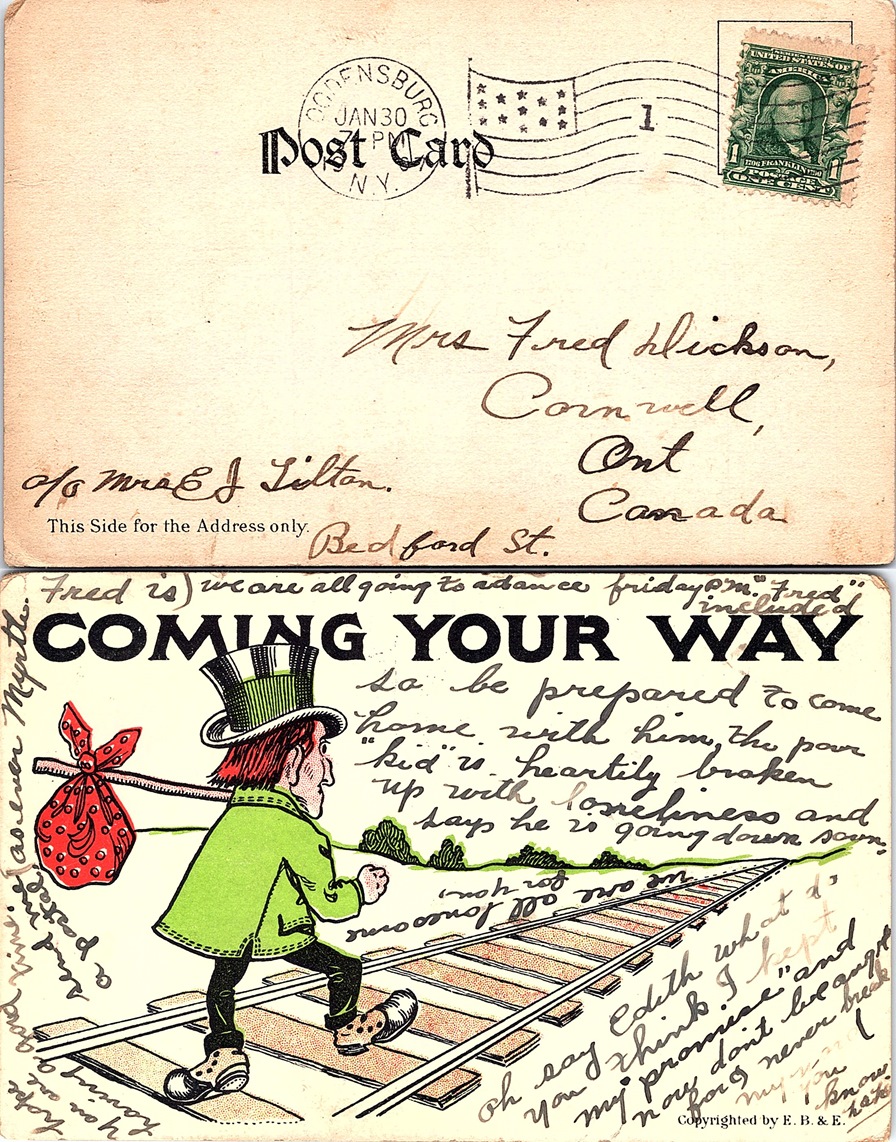 OGDENSBURG
JAN 30
7 PM
N.Y.
1
UNITED STATES OF
AMERICA
1 1706 FRANKLIN 1790 1
POSTAGE
ONE CENT
Post Card
Mrs Fred Dickson,
Cornwell,
Ont
Canada
c/o Mrs E J Tilton.
This Side for the Address only.
Bedford St.
Fred is) we are all going to a dance friday P.M. "Fred"
included
COMING YOUR WAY
so be prepared to come
home with him, the poor
"kid" is heartily broken
up with lonesliness and
says he is going down soon,
we are all lonesome
for you,
oh say Edith what d'
you think I kept
my promise" and
now don't be caught
for I never break
my
you
know
that
hope
you are
having a good time.
send me
a postal
as ever Myrtle.
Copyrighted by E. B. & E.